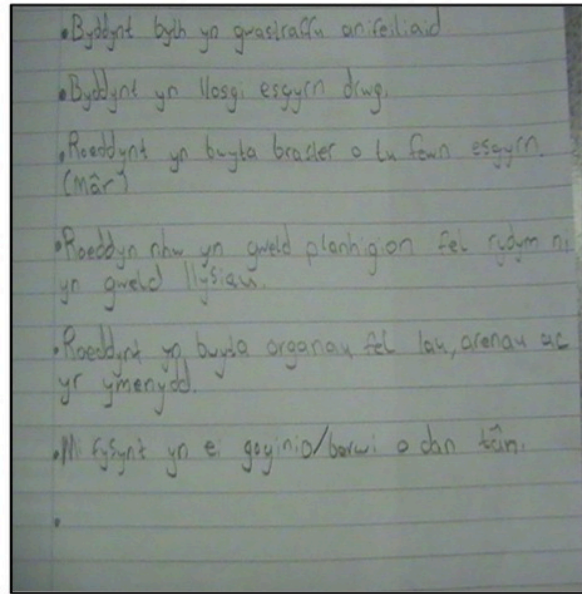 • Byddynt byth yn gwastraffu anifeiliaid.
• Byddynt yn llosgi esgyrn drwg.
• Roeddynt yn bwyta braster o tu fewn esgyrn.
(mâr)
• Roeddyn nhw yn gweld planhigion fel rydym ni
yn gweld llysiau.
• Roeddynt yn bwyta organau fel Iau, arenau ac
yr ymenydd.
• Mi fysynt yn ei goginio/berwi o dan tân.
•